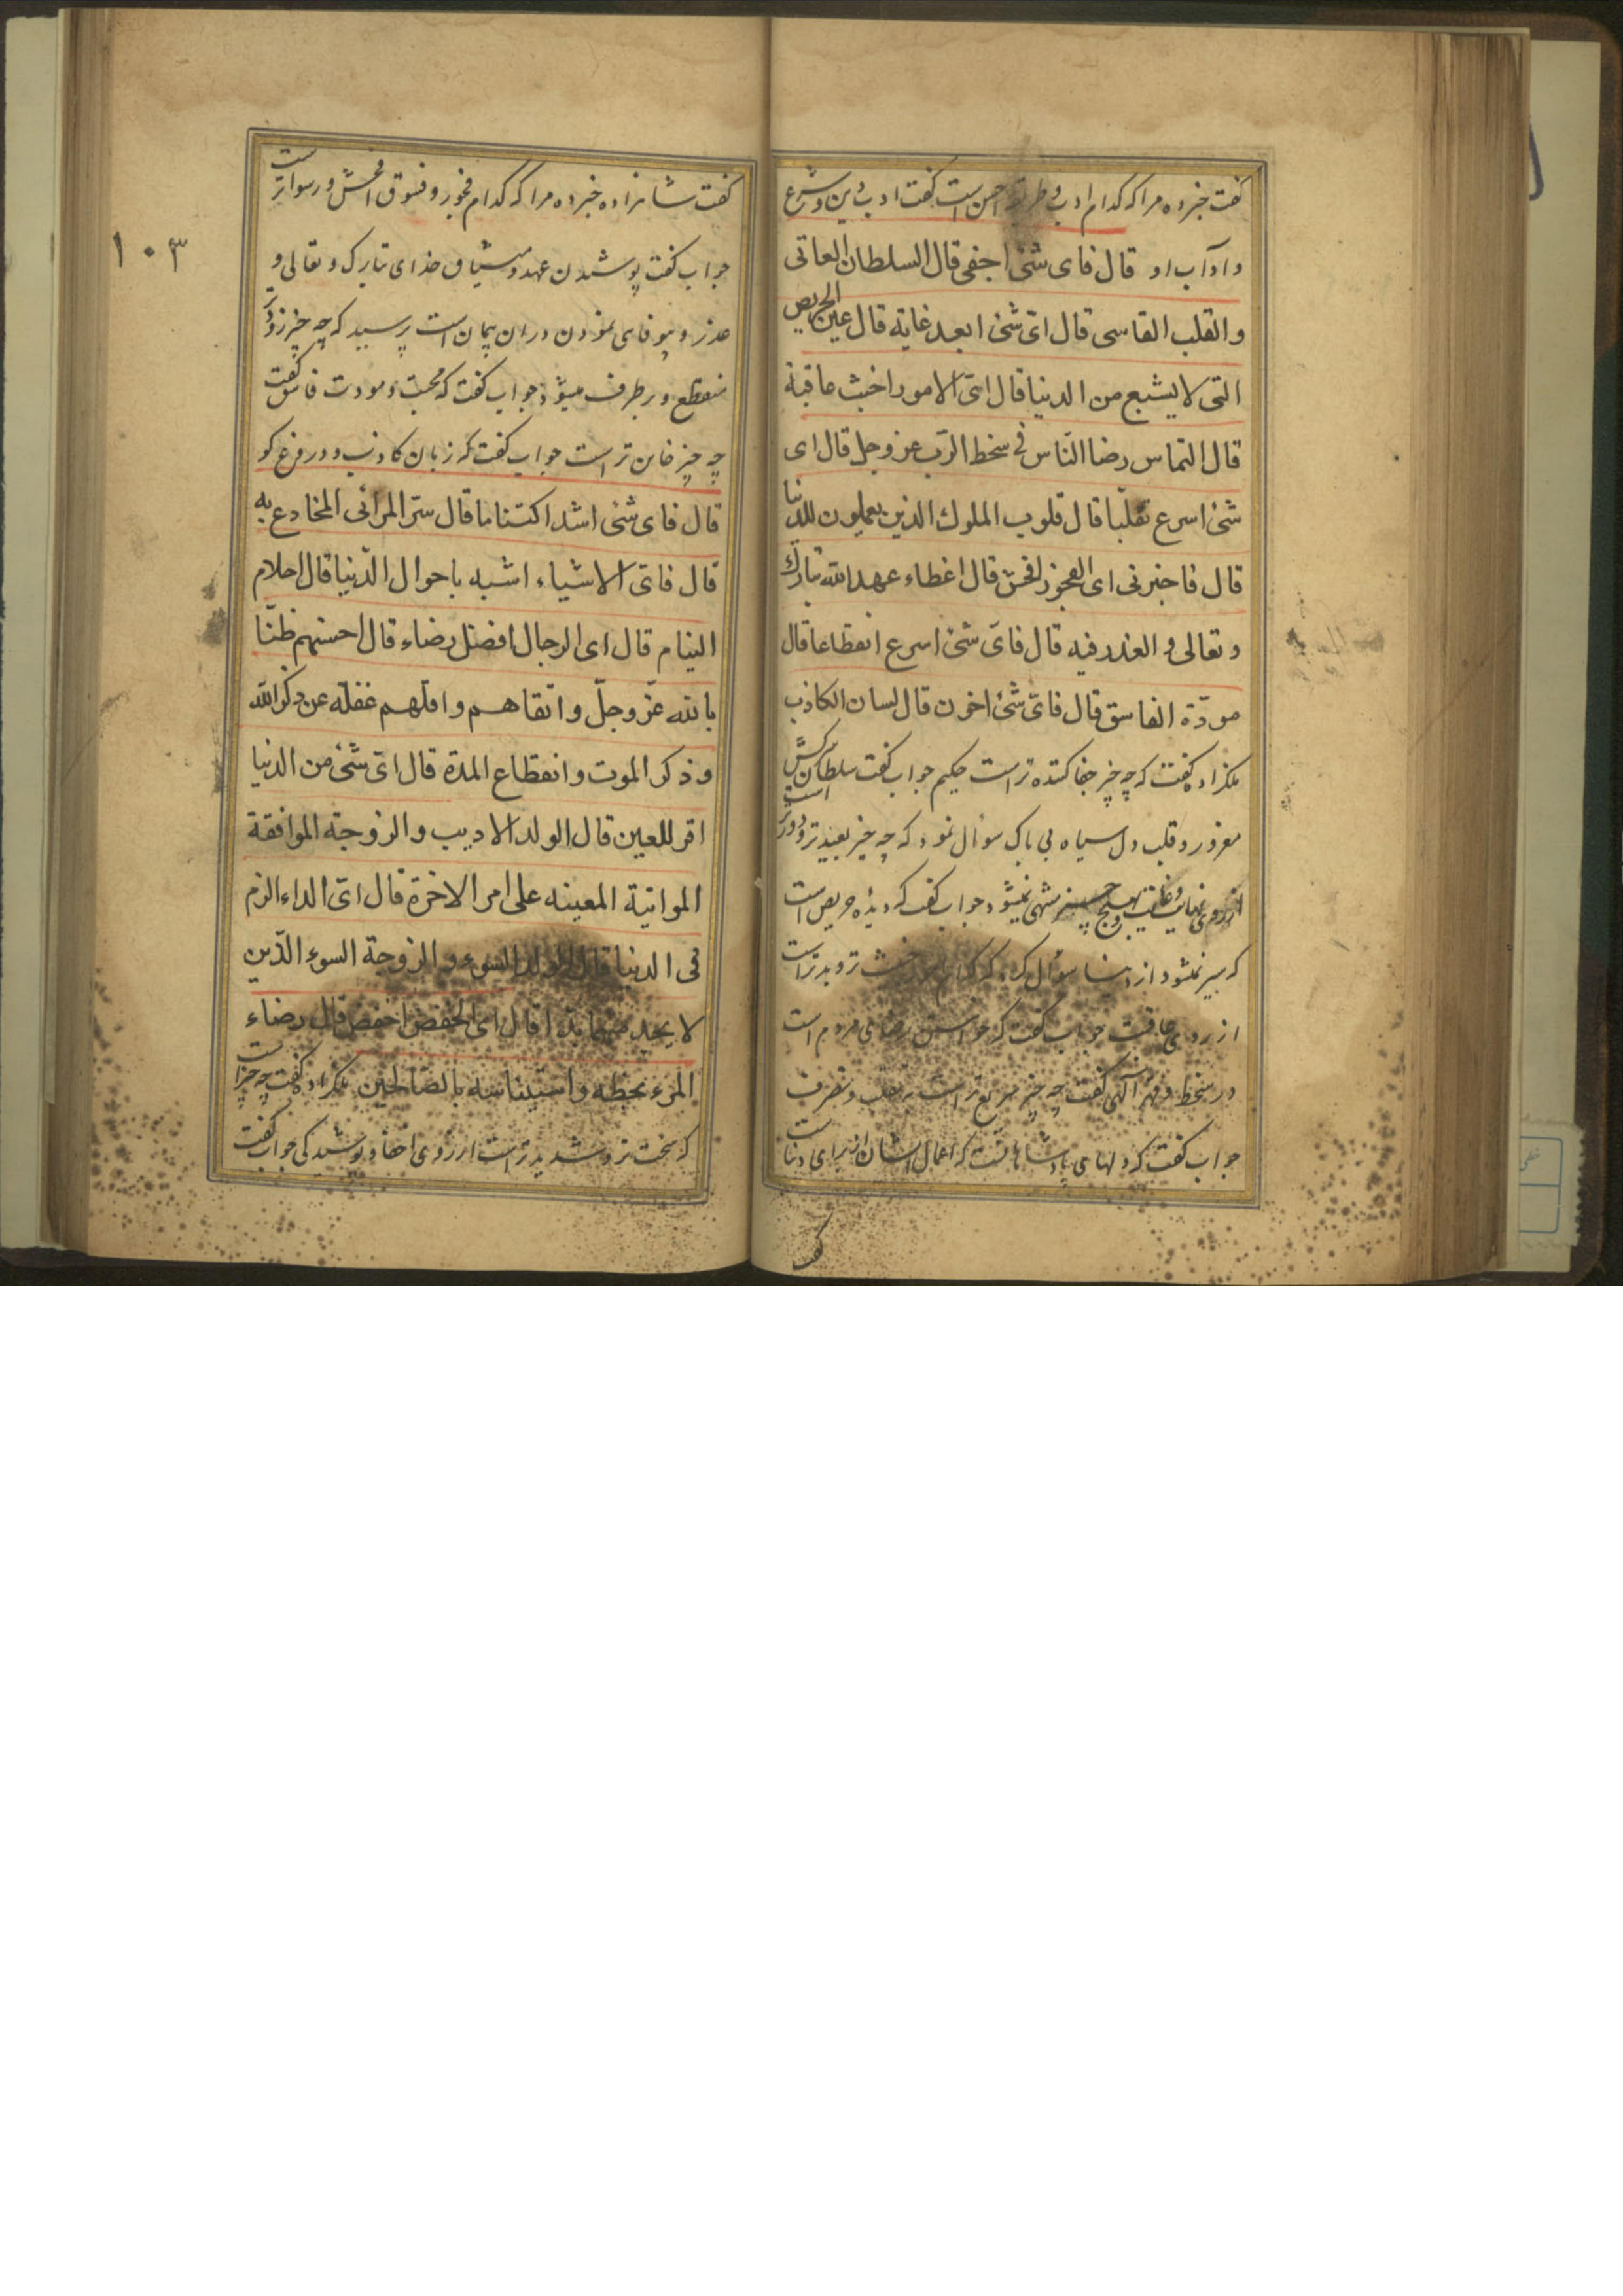 گفت خبر ده مرا که کدام ادب و طریقه احسن است گفت ادب دین و شرع
و آداب او قال فای شئ اجفی قال السلطان العاتی
و القلب القاسی قال ایّ شئ ابعد غایة قال عین الحریص
التی لا یشبع من الدنیا قال ایّ الامور اخبث عاقبة
قال التماس رضا النّاس فی سخط الرّب عز وجل قال ای
شئ اسرع تقلّبا قال قلوب الملوك الذین یعملون للدنیا
قال فاخبرنی ای الفجور افحش قال اعطاء عهد الله تبارك
و تعالی و الغدر فیه قال فایّ شئ اسرع انقطاعا قال
مودّة الفاسق قال فایّ شئ اخون قال لسان الکاذب
ملکزاده گفت که چه چیز جفا کننده تر است حکیم جواب گفت سلطان سرکش
مغرور و قلب و دل سیاه بی باک سؤال نمود که چه چیز بعیدتر و دورتر است
از روی نهایت و غایت بهیچ چیز منتهی نمیشود جواب گفت که دیده حریص است
که سیر نمیشود از دنیا سؤال کرد که کدام امور خبیث تر و بدتر است
از روی عاقبت جواب گفت که خواستن رضای مردم است
در سخط و قهر الهی گفت چه چیز سریع تر است تقلب و تصرف
جواب گفت که دلهای پادشاهانست که اعمال ایشان از برای دنیاست
گفت شاهزاده خبر ده مرا که کدام فجور و فسوق افحش و رسواتر است
جواب گفت پوشیدن عهد و میثاق خدای تبارک و تعالی و
غدر و بیوفای نمودن در ان پیمان است پرسید که چه چیز زودتر
منقطع و برطرف میشود جواب گفت که محبت و مودت فاسق گفت
چه چیز خاین تر است جواب گفت که زبان کاذب و دروغ گو
قال فای شئ اشد اکتتاما قال سرّ المرائی المخادع به
قال فایّ الاشیاء اشبه باحوال الدّنیا قال احلام
النیام قال ای الرجال افضل رضاء قال احسنهم ظنّا
بالله عزّ وجلّ و اتقاهم و اقلّهم غفلة عن ذکر الله
و ذکر الموت و انقطاع المدة قال ایّ شئ من الدنیا
اقر للعین قال الولد الادیب و الزوجة الموافقة
المواتیة المعینه علی امر الاخرة قال ایّ الداء الزم
فی الدنیا قال الولد السوء و الزوجة السوء الذّین
لا یجد منهما بدّا قال ای الخفض اخفض قال رضاء
المرء بحظه و استیناسه بالصّالحین ملکزاده گفت چه چیز است
که سخت تر و شدیدتر است از روی اخفا و پوشیدگی جواب گفت
۱۰۳